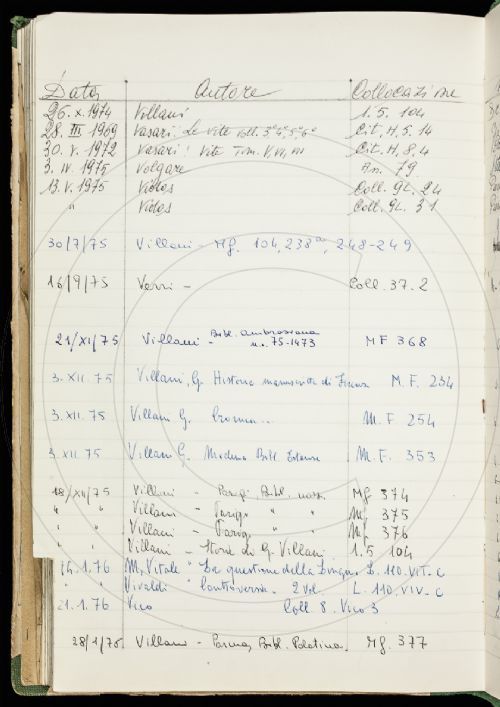 Data Autore Collocazione
26. X. 1974 Villani 1. 5. 104
28. III 1969 Vasari: Le Vite voll. 3° 4° 5° 6° Cit. H. 5. 14
30. V. 1972 Vasari: Vite Tom. V, VI, VII Cit. H. 8. 4
3. IV. 1975 Volgare An. 79
13. V. 1975 Vidos Coll. 9L. 24
" Vidos Coll. 9L. 31
30/7/75 Villani - Mf. 104, 238, 248-249
16/9/75 Verri - Coll. 37. 2
21/XI/75 Villani - Bibl. Ambrosiana MF 368
n.c. 75-1473
3. XII. 75 Villani, G. Historia manuscritta di M. F. 234
3. XII. 75 Villani G. Cronica.. M. F. 254
3. XII 75 Villani G. Modena Bibl. Estense M. F. 353
18/XII/75 Villani - Parigi, Bibl. naz. Mf 374
" " Villani - Parigi " " Mf 375
" " Villani - Parigi " " Mf 376
" " Villani - Storie di G. Villani 1. 5 104
14. 1. 76 M. Vitale "La questione della Lingua L. 110. VIT- C
" Vivaldi "Controversie. 2 vol. L. 110. VIV- C
21. 1. 76 Vico Coll 8. Vico 3
28/1/76 Villani - Parma, Bibl. Palatina. Mf. 377